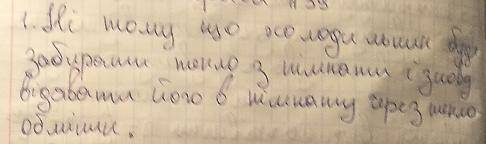 №33
1. Ні тому що холодильник буде
забирати тепло з кімнати і знову
відавати його в кімнату через тепло-
обміник.